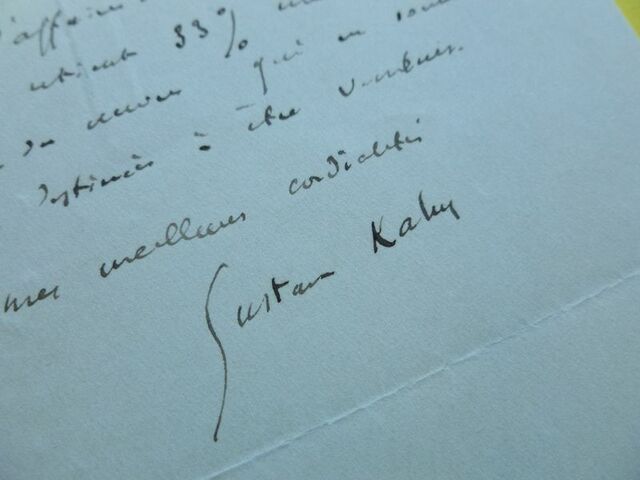 d'affaires
retient 33%
qui en
destinées à être vendues.
mes meilleures cordialités
Gustave Kahn